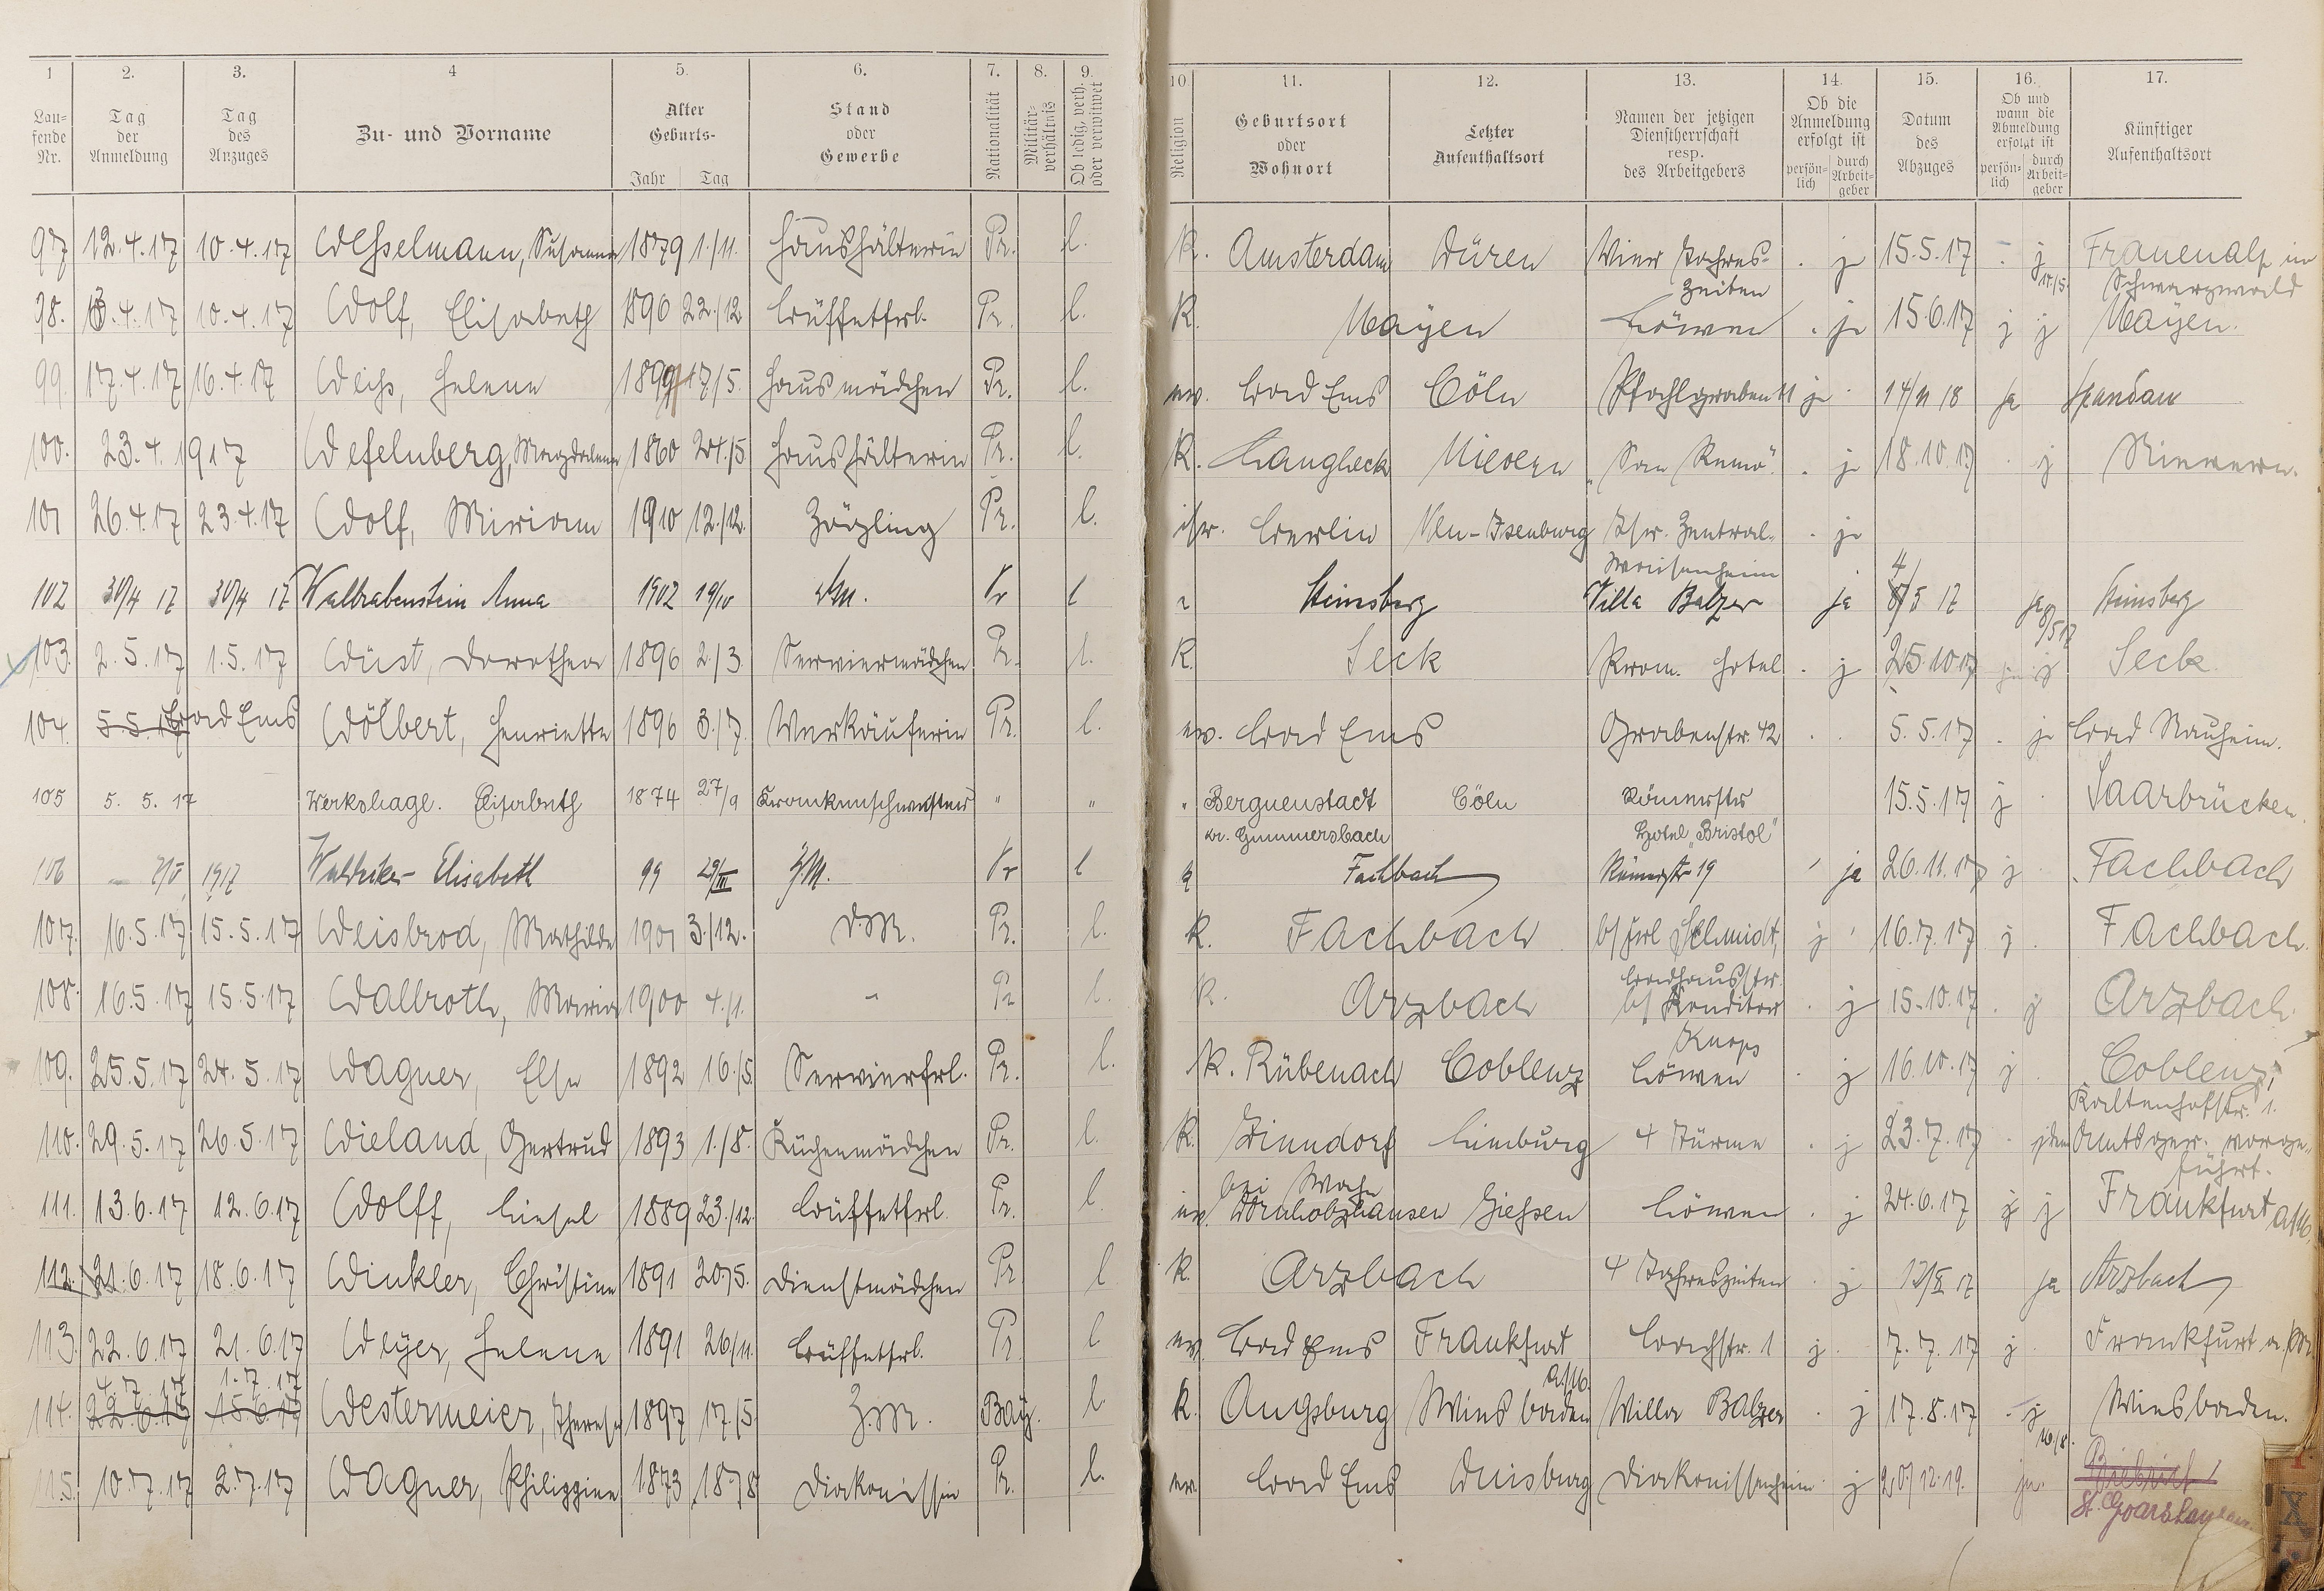 1 2. 3. 4 5. 6. 7. 8. 9. 10. 11. 12. 13. 14. 15. 16. 17.
Lau=fende Nr. Tag der Anmeldung Tag des Anzuges Zu- und Vorname Alter Geburts- Jahr Tag Stand oder Gewerbe Nationalität Militär-verhältnis Ob ledig, verh. oder verwitwet Religion Geburtsort oder Wohnort Letzter Aufenthaltsort Namen der jetzigen Dienstherrschaft resp. des Arbeitgebers Ob die Anmeldung erfolgt ist persön-lich durch Arbeit-geber Datum des Abzuges Ob und wann die Abmeldung erfolgt ist persön-lich durch Arbeit-geber Künftiger Aufenthaltsort
97 12.4.17 10.4.17 Wesselmann, Susanna 1879 1./11. Haushälterin Pr. l. K. Amsterdam Düren Vier Jahres- . ja 15.5.17 - j Frauenalp im
Zeiten 17./5. Schwarzwald
98. 13.4.17 10.4.17 Wolf, Elisabeth 1896 22./12 Büffetfrl. Pr. l. K. Mayen Löwen . ja 15.6.17 j j Mayen.
99. 17.4.17 16.4.17 Weiss, Helene 1899 17/5. Hausmädchen Pr. l. ev. Bad Ems Cöln Pfahlgraben 11 ja . 14/11 18 ja Spandau
100. 23.4.1917 Wefelnberg, Magdalena 1860 24./5. Haushälterin Pr. l. K. Langheck Nievern "San Remo". . ja 18.10.17 . j Nievern.
101 26.4.17 23.4.17 Wolf, Miriam 1910 12./12. Zögling Pr. l. isr. Berlin Neu-Isenburg Isr. Zentral- . ja
Waisenheim 4
102 30/4 17 30/4 17 Wallrabenstein Anna 1902 19/10 Pr l Steinsberg Villa Balzer ja /5 17 ja 8/5 17 Steinsberg
103. 2.5.17 1.5.17 Wüst, Dorothea 1896 2./3. Serviermädchen Pr. l. K. Seck Krom. Hotel . j 25.10.17 j Seck
104. 5.5.17 Bad Ems Wölbert, Henriette 1896 3./7. Verkäuferin Pr. l. ev. Bad Ems Grabenstr. 42 . . 5.5.17 . ja Bad Nauheim.
105 5. 5. 17 Werkshage. Elisabeth 1874 27/9 Krankenschwester " " " Berguenstadt Cöln Römerstr 15.5.17 j . Saarbrücken
Kr. Gummersbach Hotel "Bristol"
106 7/5 1917 Waldecker Elisabeth 99 29/III Z.M. Pr l Fachbach Römerstr 19 ja 26.11.17 j Fachbach
107. 16.5.17 15.5.17 Weisbrod, Mathilde 1901 3./12. D.M. Pr. l. K. Fachbach b/ Frl Schmidt, j 16.7.17 j . Fachbach.
Badhausstr.
108. 16.5.17 15.5.17 Wallroth, Maria 1900 4./1. " Pr l. K. Arzbach b/ Konditor . j 15.10.17 . j Arzbach.
Knops
109. 25.5.17 24.5.17 Wagner, Else 1892 16./5. Servierfrl. Pr. l. K. Rübenach Coblenz Löwen . j 16.10.17 j . Coblenz,
Kaltenhofstr. 1.
110. 29.5.17 26.5.17 Wieland, Gertrud 1893 1./8. Küchenmädchen Pr. l. K. Zinndorf Limburg 4 Türme . j 23.7.17 . dem Amtsger. vorge-
bei Wahn führt.
111. 13.6.17 12.6.17 Wolff, Liesel 1889 23./12. Büffetfrl. Pr. l. ev. Dornholzhausen Giessen Löwen . j 24.6.17 j j Frankfurt a/M.
112. 21.6.17 18.6.17 Winkler, Christine 1891 20./5. Dienstmädchen Pr. l K. Arzbach 4 Jahreszeiten . j 12/X 17 ja Arzbach
113. 22.6.17 21.6.17 Weyer, Helene 1891 26/11. Büffetfrl. Pr. l ev. Bad Ems Frankfurt Bachstr. 1 j. 7.7.17 j . Frankfurt a. M.
4.7.17 1.7.17 a/M.
114. 22.6.17 15.6.17 Westermeier, Therese 1897 17./5. Z.M. Bay. l. K. Augsburg Wiesbaden Villa Balzer . j 17.8.17 - j 16/8. Wiesbaden.
115. 10.7.17 2.7.17 Wagner, Philippine 1873 18./8 Diakonissin Pr. l. ev. Bad Ems Duisburg Diakonissenheim . j 20/12.19. ja. Biebrich
St. Goarshausen.